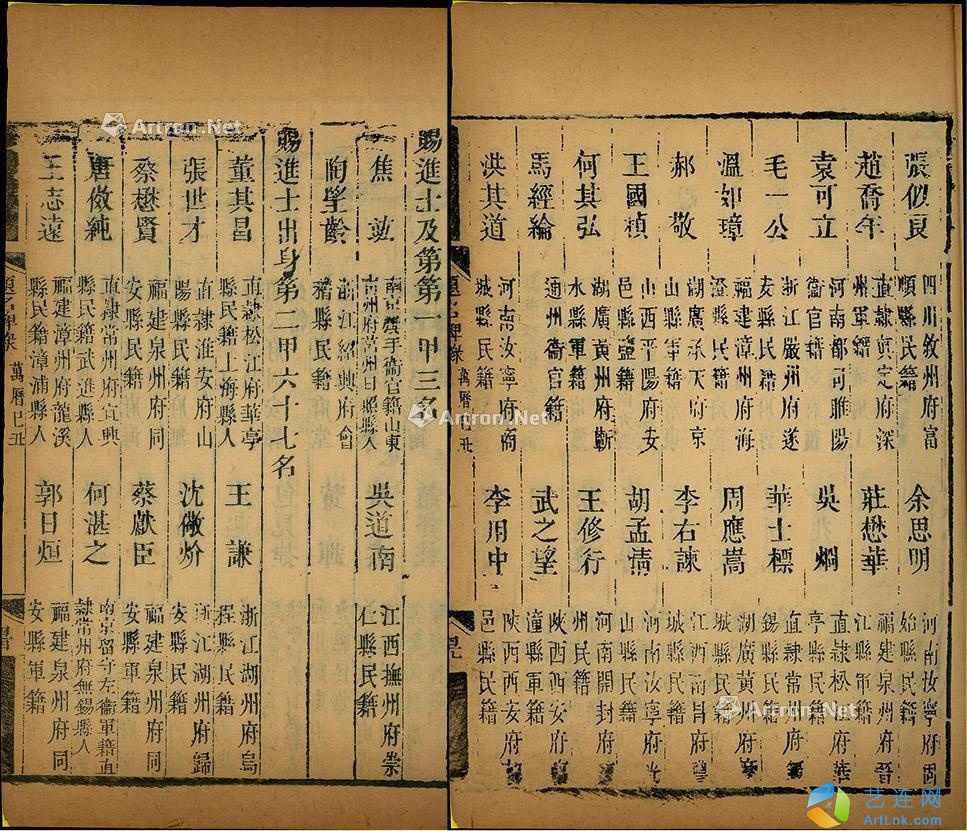 張似良 四川敘州府富
順縣民籍 余思明 河南汝寧府固
始縣民籍
趙喬年 直隸真定府深
州軍籍 莊懋華 福建泉州府晉
江縣民籍
袁可立 河南都司睢陽
衛官籍 吳烱 直隸松江府華
亭縣民籍
毛一公 浙江嚴州府遂
安縣民籍 華士標 直隸常州府
錫縣民籍
溫如璋 福建漳州府海
澄縣民籍 周應嵩 湖廣黃州府
城縣民籍
郝敬 湖廣承天府京
山縣民籍 李右諫 江西南昌府
城縣民籍
王國禎 山西平陽府安
邑鹽籍 胡孟清 河南汝寧府光
山縣民籍
何其弘 湖廣黃州府蘄
水縣軍籍 王修行 河南開封府
州民籍
馬經綸 通州衛官籍 武之望 陝西西安府
潼軍籍
洪其道 河南汝寧府商
城縣民籍 李用中 陝西西安府
邑縣民籍
題名碑錄 萬曆己丑
賜進士及第第一甲三名
焦竑 南京旗手衛官籍山東
青州府莒州日照縣人 吳道南 江西撫州府崇
仁縣民籍
陶望齡 浙江紹興府會
稽縣民籍
賜進士出身第二甲六十七名
董其昌 直隸松江府華亭
縣民籍上海縣人 王謙 浙江湖州府烏
程縣民籍
張世才 直隸淮安府山
陽縣民籍 沈儆炌 浙江湖州府歸
安縣民籍
蔡懋賢 福建泉州府同
安縣民籍 蔡獻臣 福建泉州府同
安縣軍籍
唐傚純 直隸常州府宜興
縣民籍武進縣人 何湛之 南京留守左衛軍籍直
隸常州府無錫縣人
王志遠 福建漳州府龍溪
縣民籍漳浦縣人 郭日烜 福建泉州府同
安縣軍籍
題名碑錄 萬曆己丑
Artron.Net
Artron.Net
Artron.Net
艺连网
ArtLnk.com